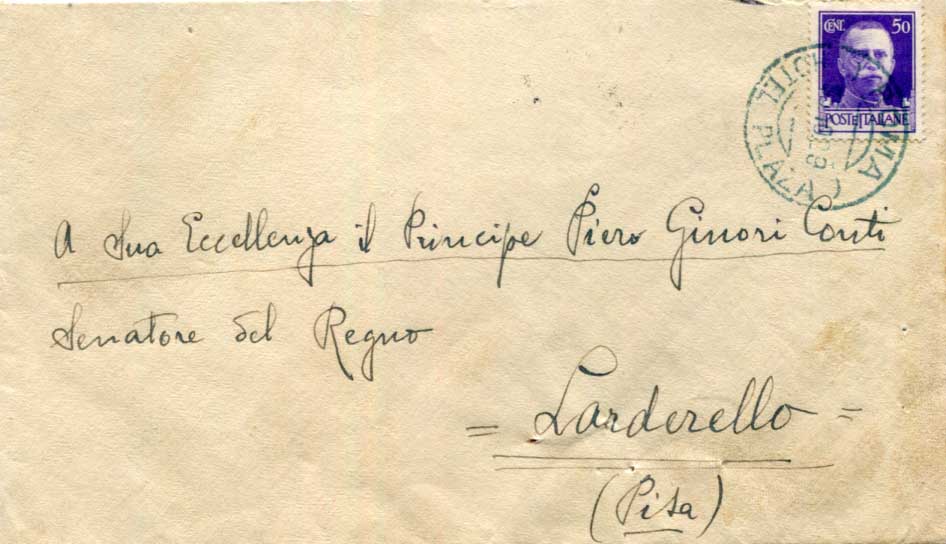 CENT. 50
POSTE ITALIANE
ROMA
HOTEL PLAZA
A Sua Eccellenza il Principe Piero Ginori Conti
Senatore del Regno
= Larderello =
(Pisa)